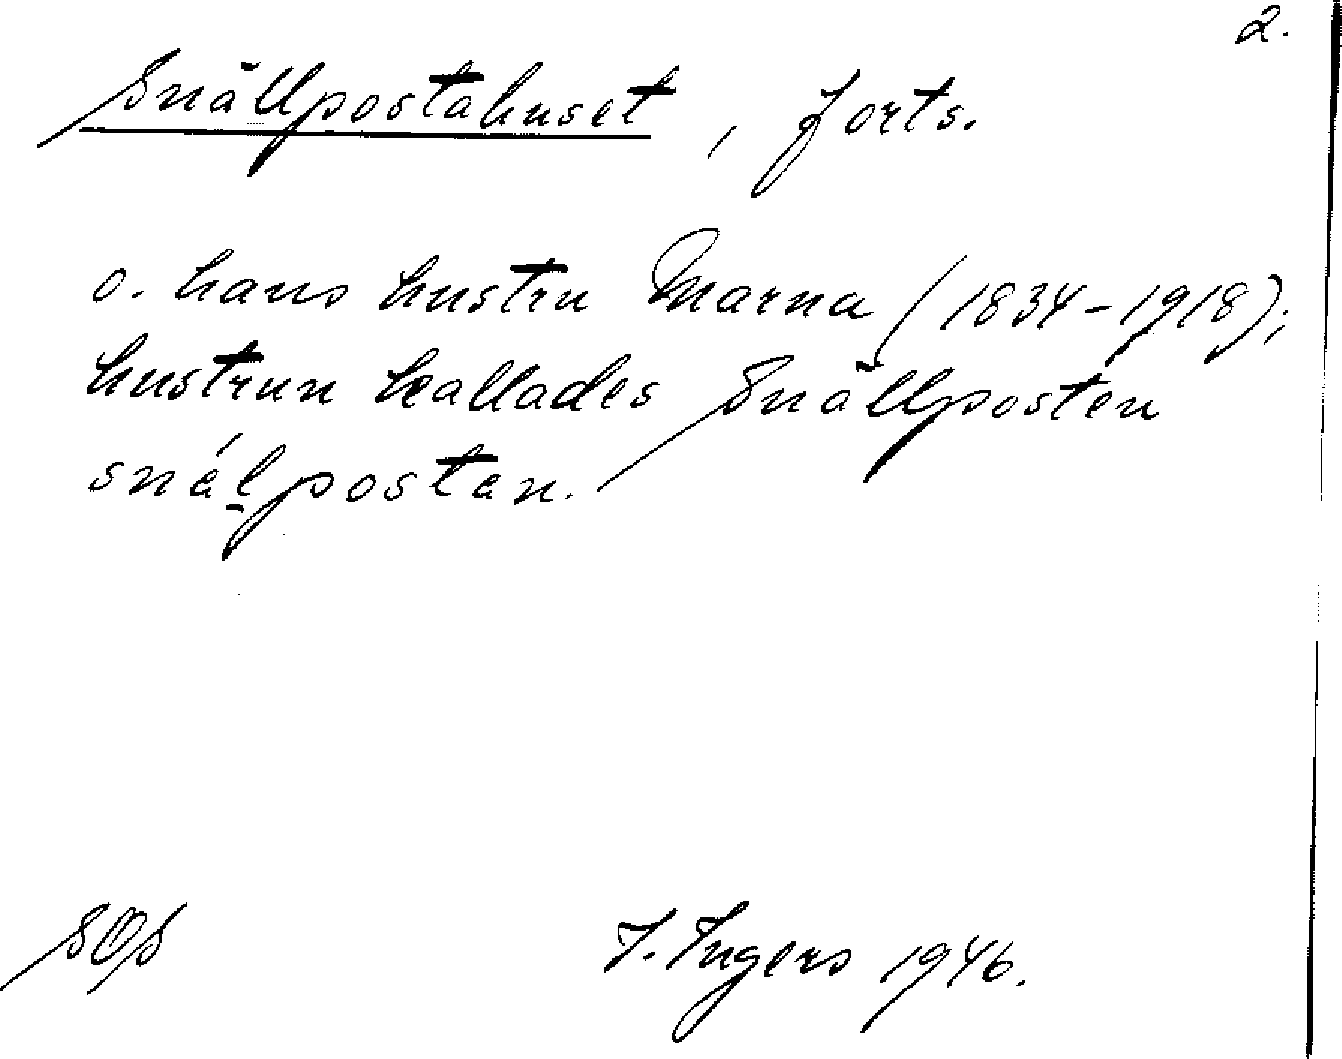 2.
Snällpostahuset, forts.
o. hans hustru Marna (1834-1918);
hustrun kallades Snällposten
snálpostan.
SOS
I. Ingers 1946.